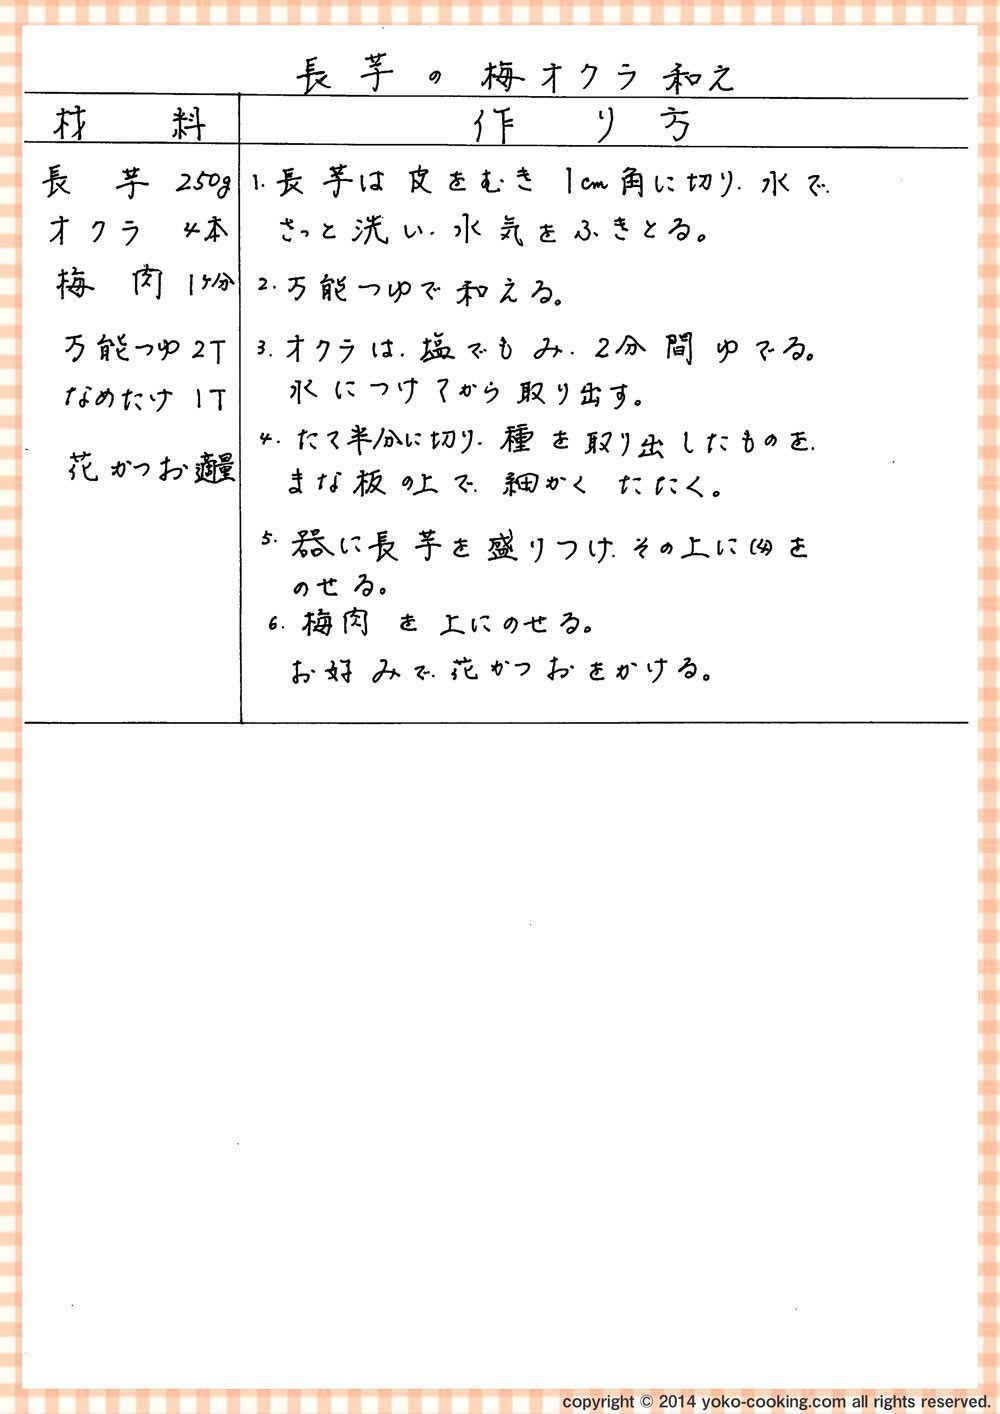 長芋の梅オクラ和え
材料
作り方
長芋 250g
オクラ 4本
梅肉 1ケ分
万能つゆ 2T
なめたけ 1T
花かつお 適量
1. 長芋は皮をむき 1cm角に切り、水で、
さっと洗い、水気をふきとる。
2. 万能つゆで和える。
3. オクラは、塩でもみ、2分間ゆでる。
水につけてから取り出す。
4. たて半分に切り、種を取り出したものを、
まな板の上で、細かくたたく。
5. 器に長芋を盛りつけ、その上に(4)を
のせる。
6. 梅肉を上にのせる。
お好みで、花かつおをかける。
copyright © 2014 yoko-cooking.com all rights reserved.